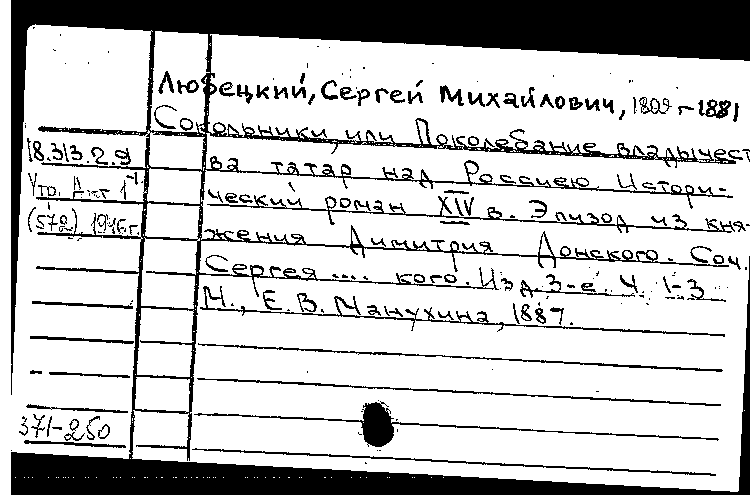 Любецкий, Сергей Михайлович, 1809-1881
Сокольники, или Поколебание владычест
ва татар над Россиею. Истори-
ческий роман XIV в. Эпизод из кня-
жения Димитрия Донского. Соч.
Сергея .... кого. Изд. 3-е. Ч. 1-3
М., Е. В. Манухина, 1887.
18.313.2.9
Утр. Акт
(572) 1946 г.
371-250